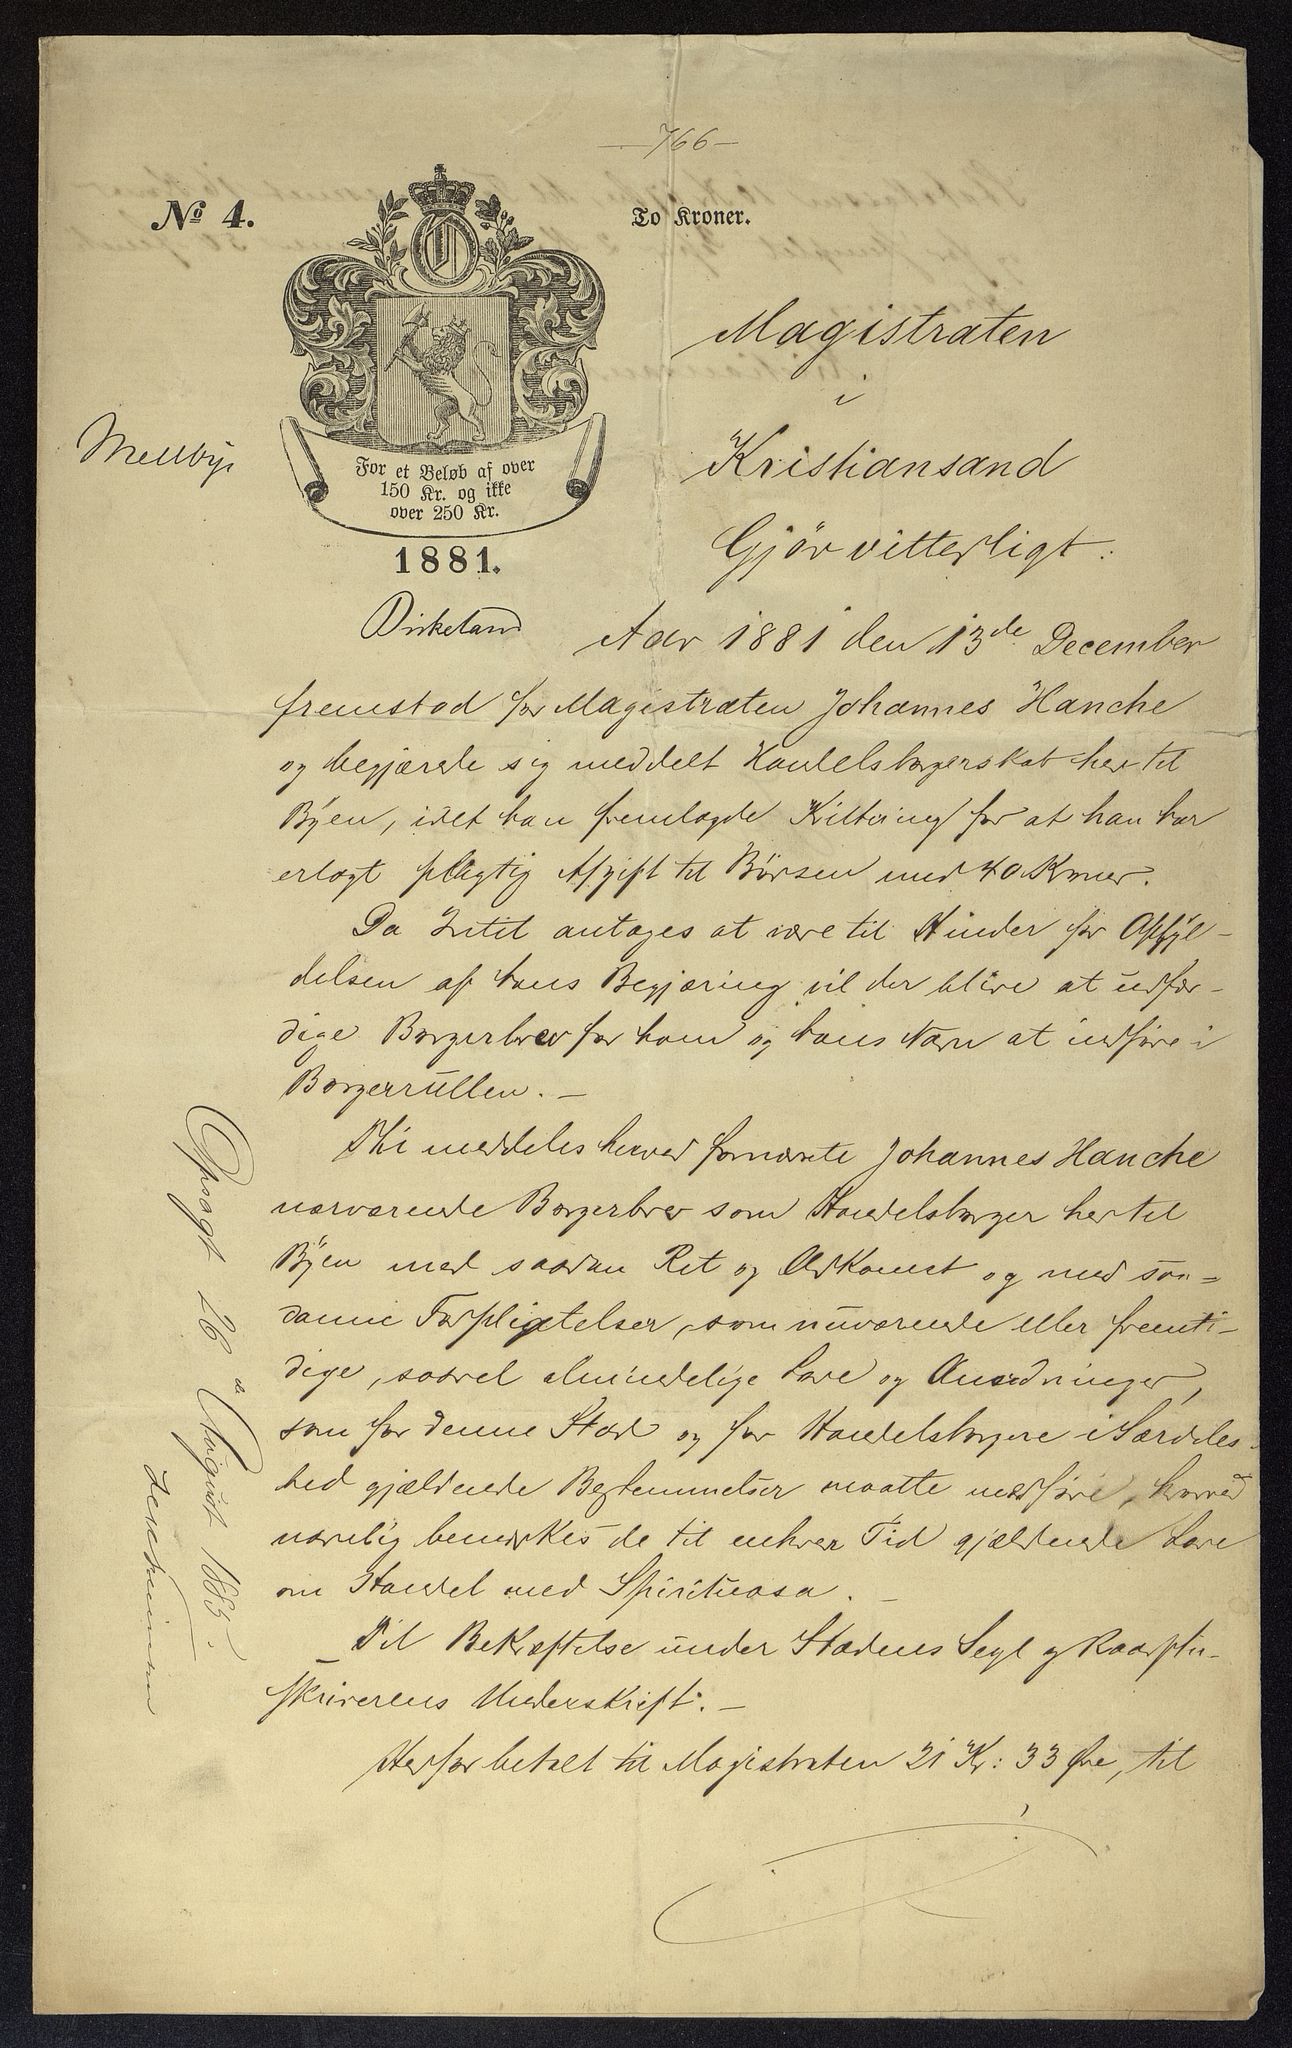 — 766 —
No 4.
To Kroner.
Magistraten
i
Kristiansand
Gjör vitterligt:
For et Beløb af over
150 Kr. og ikke
over 250 Kr.
1881.
Aar 1881 den 13de December
fremstod for Magistraten Johannes Hanche
og begjærede sig meddelt Handelsborgerskab her til
Byen, idet han fremlagde Kvittering for at han har
erlagt pligtig Afgift til Börsen med 40 Kroner.
Da Intet antages at være til Hinder for Opfyl-
delsen af hans Begjæring vil der blive at udfær-
dige Borgerbrev for ham og hans Navn at indføre i
Borgerrullen. —
Thi meddeles herved fornævnte Johannes Hanche
nærværende Borgerbrev som Handelsborger her til
Byen med saadan Ret og Adkomst og med saa-
danne Forpligtelser, som nuværende eller fremti-
dige, saavel almindelige Love og Anordninger,
som for denne Stad og for Handelsborgere i Særdeles-
hed gjældende Bestemmelser maatte medføre, hvorved
navnlig bemærkes de til enhver Tid gjældende Love
om Handel med Spirituosa. —
Til Bekræftelse under Stadens Segl og Raadstu-
skriverens Underskrift. —
Herfor betalt til Magistraten 21 Kr: 33 Øre, til
Opsagt 26de August 1885.